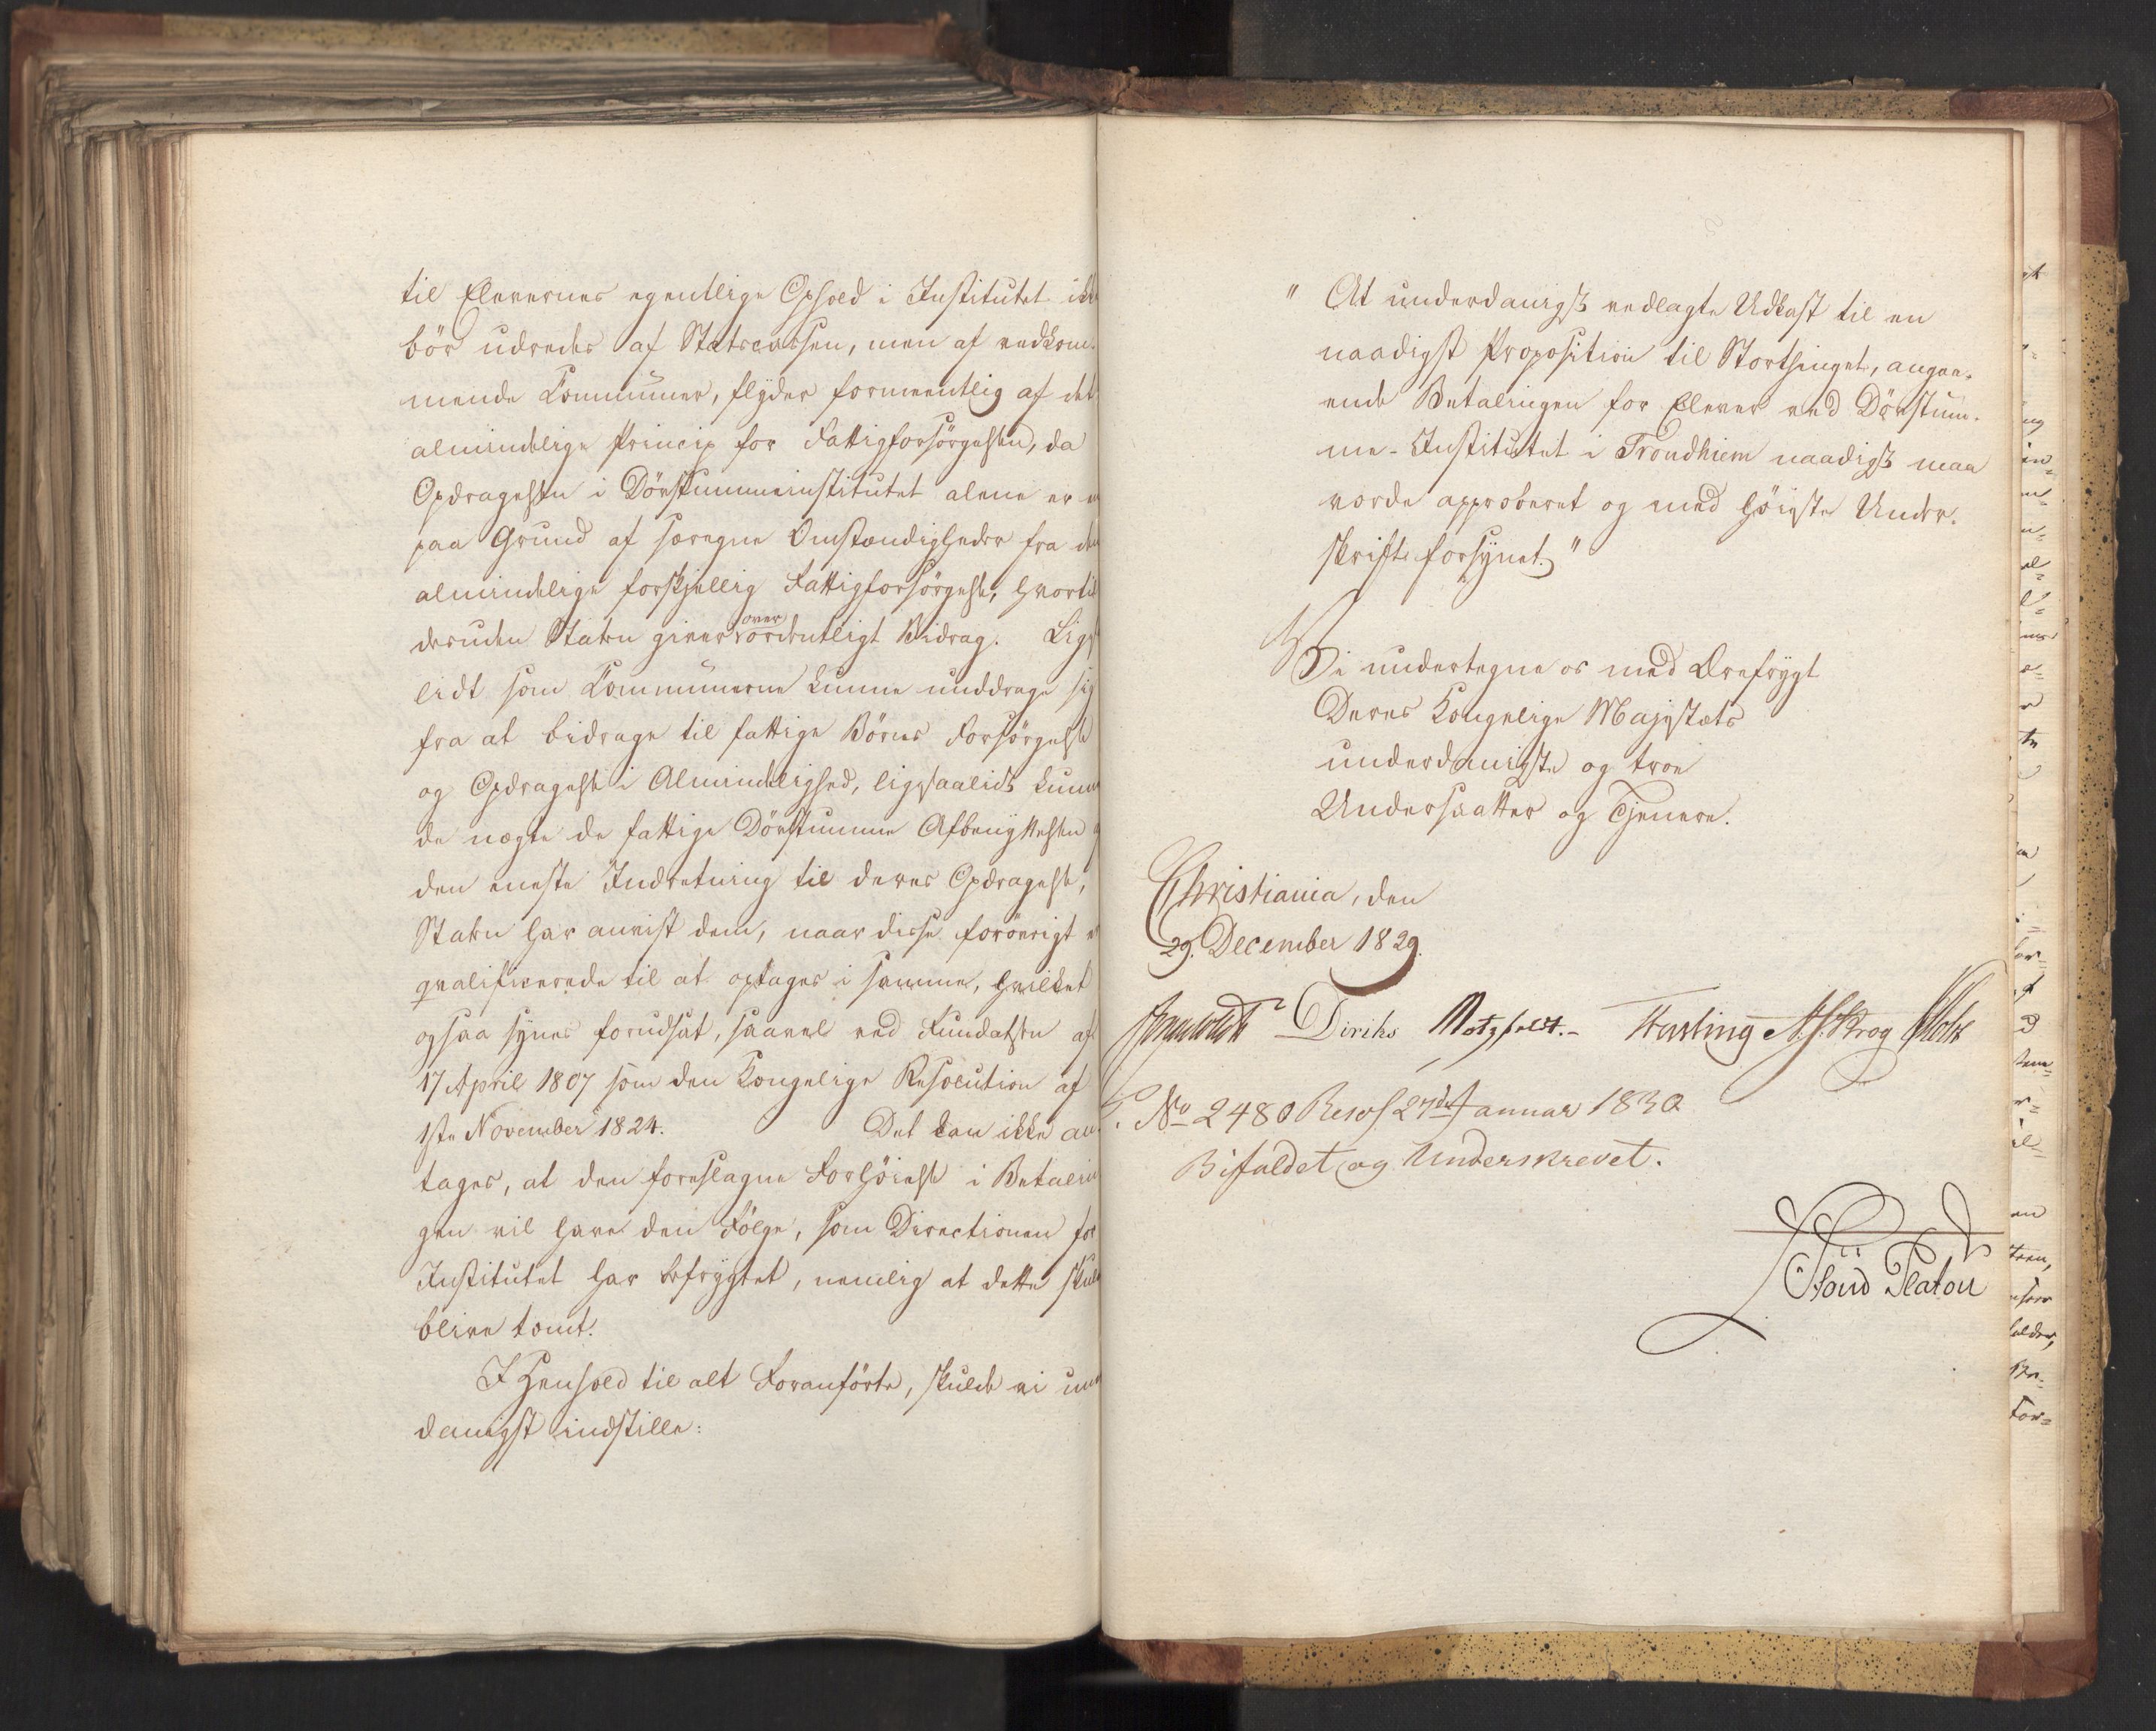 til Elevernes egentlige Ophold i Institutet ikke
bör udredes af Statscassen, men af vedkom-
mende Communer, flyder formeentlig af det
almindelige Princip for Fattigforsörgelsen, da
Opdragelsen i Dövstummeinstitutet alene er en
paa Grund af særegne Omstændigheder fra den
almindelige forskjellig Fattigforsörgelse, hvortil
desuden Staten giver overordentligt Bidrag. Lige
lidt som Communerne kunne unddrage sig
fra at bidrage til fattige Börns Forsörgelse
og Opdragelse i Almindelighed, ligesaalidt kunne
de nægte de fattige Dövstumme Afbenyttelsen
den eneste Indretning til deres Opdragelse,
Staten har anvist dem, naar disse forövrigt
qvalificerede til at optages i samme, hvilket
ogsaa synes forudsat, saavel ved Fundatsen af
17 April 1807 som den Kongelige Resolution af
1ste November 1824. Det kan ikke an-
tages, at den foreslagne Forhöielse i Betalin
gen vil have den Fölge, som Directionen for
Institutet har befrygtet, nemlig at dette skulde
blive tomt.
I Henhold til alt Foranförte, skulde vi un
danigst indstille:
" At underdanigst vedlagte Udkast til en
naadigst Proposition til Storthinget, angaa-
ende Betalingen for Elever ved Dövstum-
me-Institutet i Trondhiem naadigst maa
vorde approberet og med höieste Under-
skrift forsynet."
Vi undertegne os med Ærefrygt
Deres Kongelige Majestæts
underdanigste og troe
Undersaatter og Tjenere.
Christiania, den
29. December 1829.
Diriks Motzfeldt.- Fasting A. S. Krog
No 2480 Resol 27de Januar 1830
Bifaldet og Underskrevet.
Oluf Platou